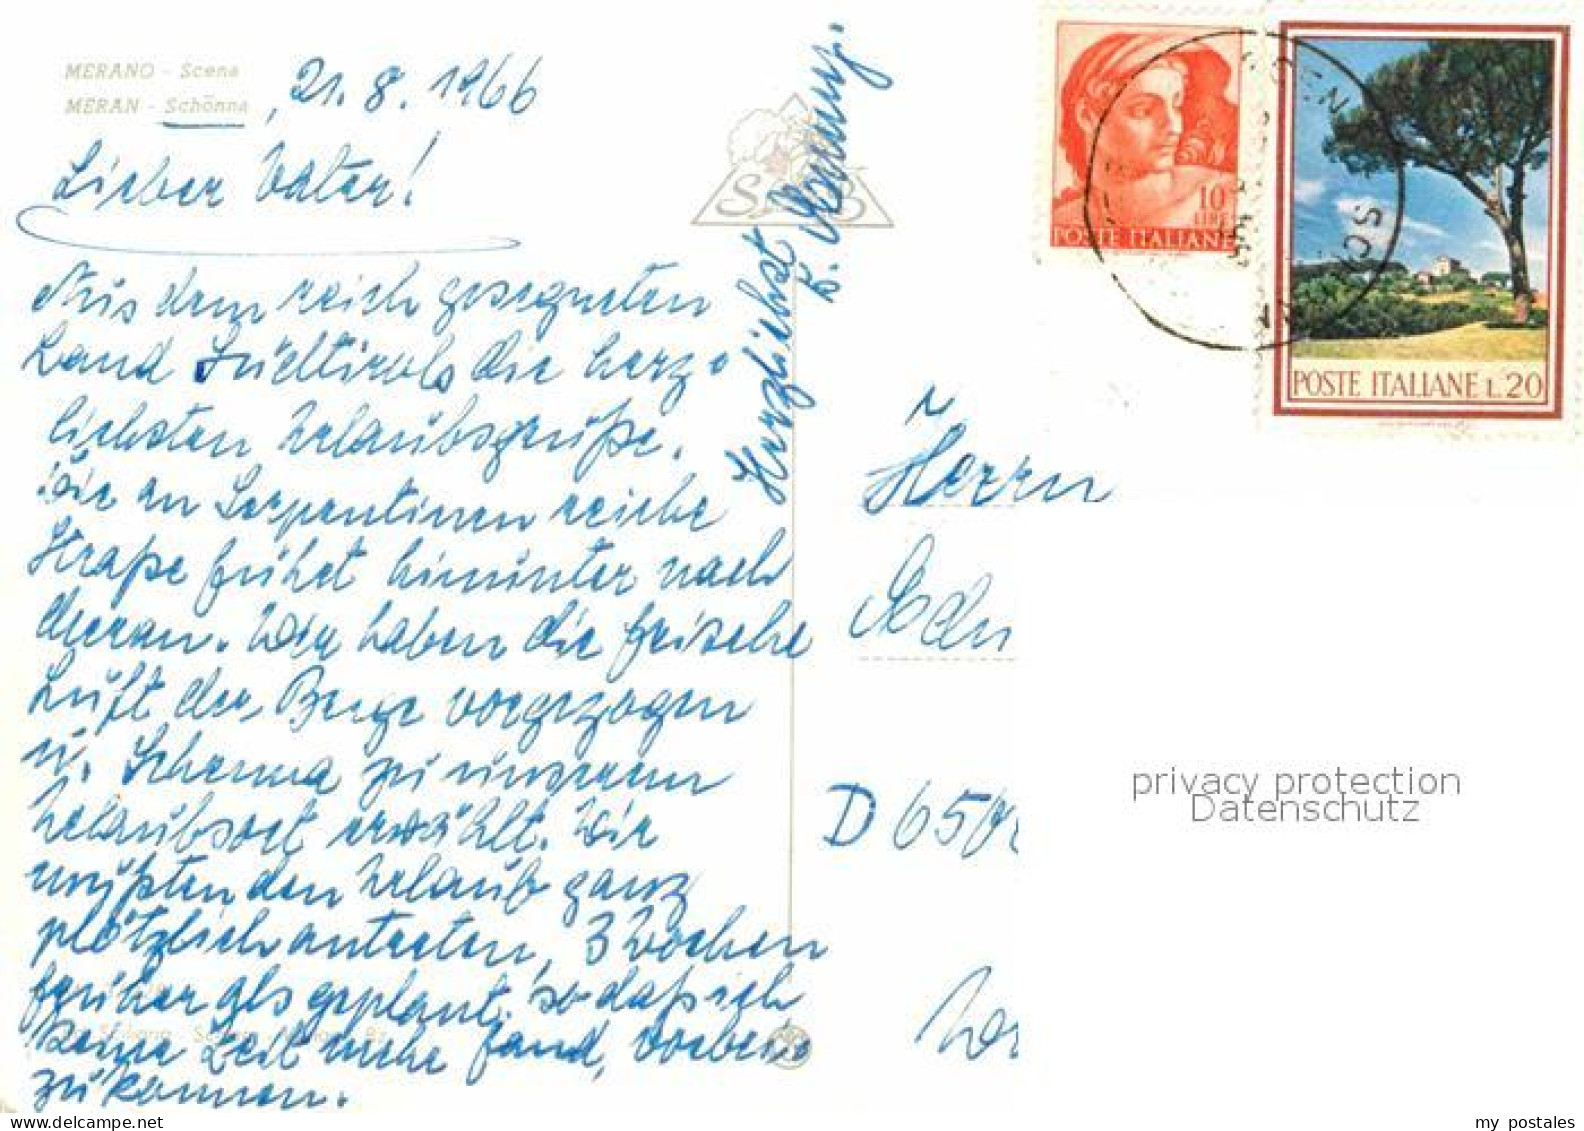 MERANO - Scena
MERAN - Schönna, 21. 8. 1966
Lieber Vater!
Aus dem reich gesegneten
Land Südtirols die herz-
lichsten Urlaubsgrüße.
Die an Serpentinen reiche
Straße führt hinunter nach
Meran. Wir haben die frische
Luft der Berge vorgezogen
u. Schenna zu unserem
Urlaubsort erwählt. Wir
mußten den Urlaub ganz
plötzlich antreten, 3 Wochen
früher als geplant. so daß ich
keine Zeit mehr fand, vorbei
zukommen.
Herzlichst
10
LIRE
POSTE ITALIANE
POSTE ITALIANE L.20
Herrn
D 65
privacy protection
Datenschutz
my postales
delcampe.net